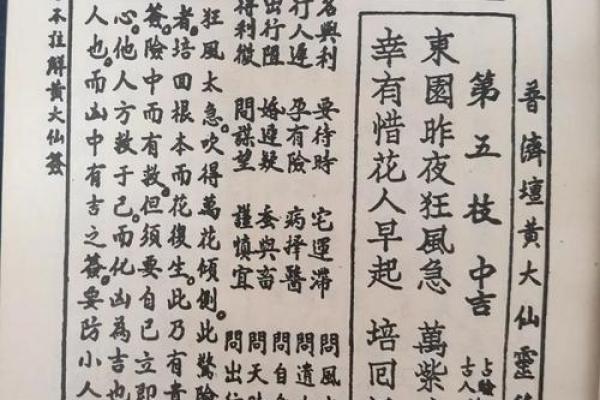 普濟壇黃大仙靈
第五枝 中吉 占驗 古人
東園昨夜狂風急 萬紫
幸有惜花人早起 培囘
名與利 要待時 宅運滯
行人遲 孕有險 病擇醫
出行阻 婚遲疑 蚕與畜
得利微 問謀望 謹慎宜
問風
問遺
問自
問天
問出行
狂風太急。吹得萬花傾側。此驚險
者。培回根本而花復生。此乃有貴
簽。險中而有救。但須要自己立即
心。他人方救于己。而化凶為吉也
人也。而凶中有吉之簽。要防小人
本註解黃大仙簽